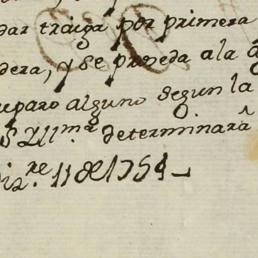 dar traiga por primera
dera, y se proceda a la
reparo alguno segun la
S Yll.ma determinarà
Diz.re 11 de 1754